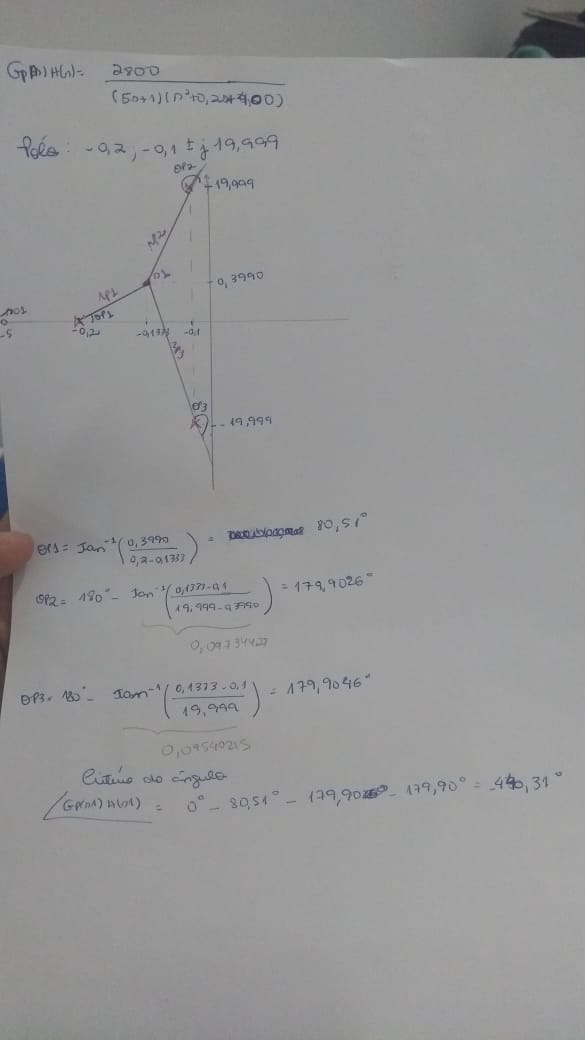 Gp(s) H(s) = 2800
(5s+1)(s²+0,2s+4,00)
Polos: -0,2 ; -0,1 ± j 19,999
θP2
19,999
MP2
s1
0,3990
MP1
θP1
-5
-0,2
-0,1333
-0,1
MP3
θP3
-19,999
θP1 = Tan⁻¹ (0,3990 / 0,2-0,1333) = 80,51°
θP2 = 180° - Tan⁻¹ (0,1333-0,1 / 19,999-0,3990) = 179,9026°
0,09734427
θP3 = 180° - Tan⁻¹ (0,1333-0,1 / 19,999) = 179,9046°
0,09540215
Critério do ângulo
/G(s1) H(s1) = 0° - 80,51° - 179,90° - 179,90° = -440,31°